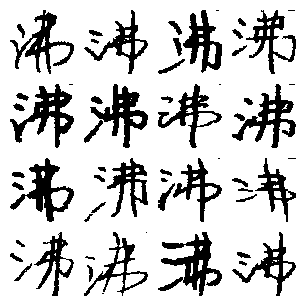 沸沸沸沸
沸沸沸沸
沸沸沸沸
沸沸沸沸